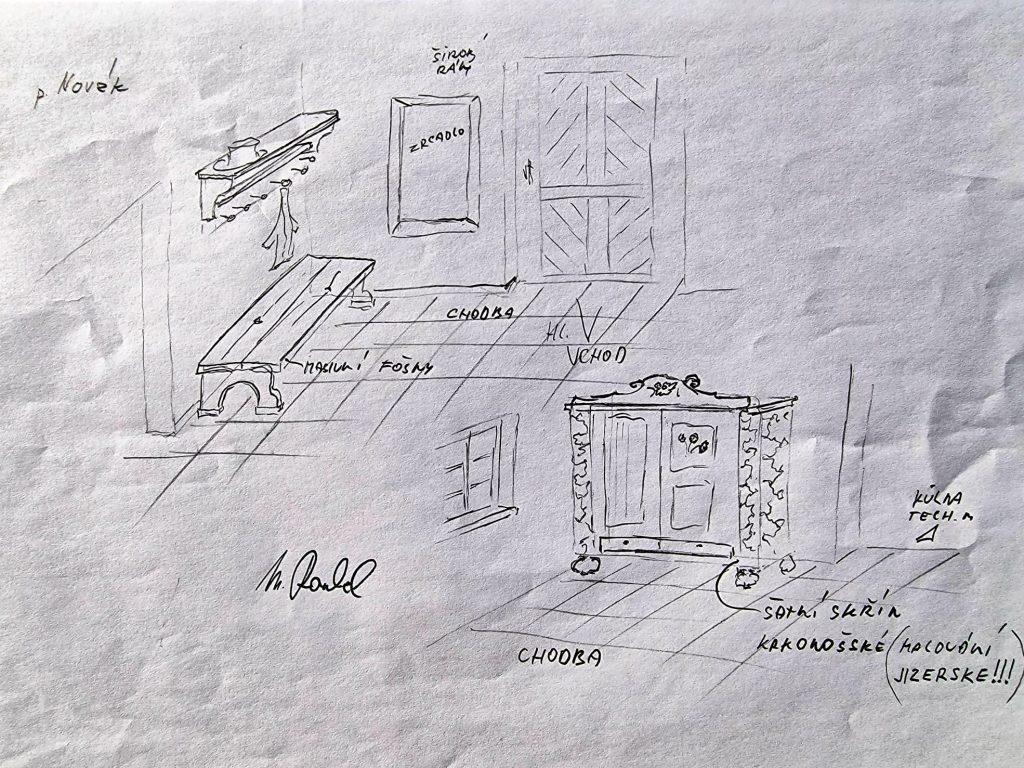 p. Novák
ŠIROKÝ
RÁM
ZRCADLO
CHODBA
HL.
VCHOD
MASIVNÍ FOŠNY
KŮLNA
TECH. M
ŠATNÍ SKŘÍŇ
KRKONOŠSKÉ (MALOVÁNÍ
JIZERSKE!!!)
CHODBA